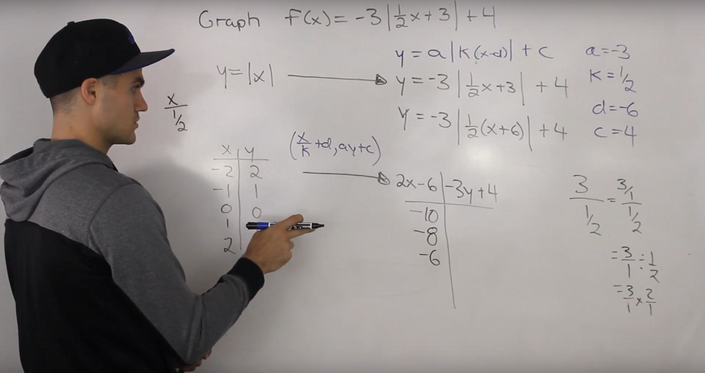 Graph f(x) = -3|1/2x+3| + 4
y = |x|
y = a|k(x-d)| + c
y = -3|1/2x+3| + 4
y = -3|1/2(x+6)| + 4
a = -3
k = 1/2
d = -6
c = 4
x/(1/2)
(x/k + d, ay + c)
x y
-2 2
-1 1
0 0
1
2
2x-6 -3y+4
-10
-8
-6
3/(1/2) = (3/1)/(1/2)
= 3/1 ÷ 1/2
= 3/1 × 2/1